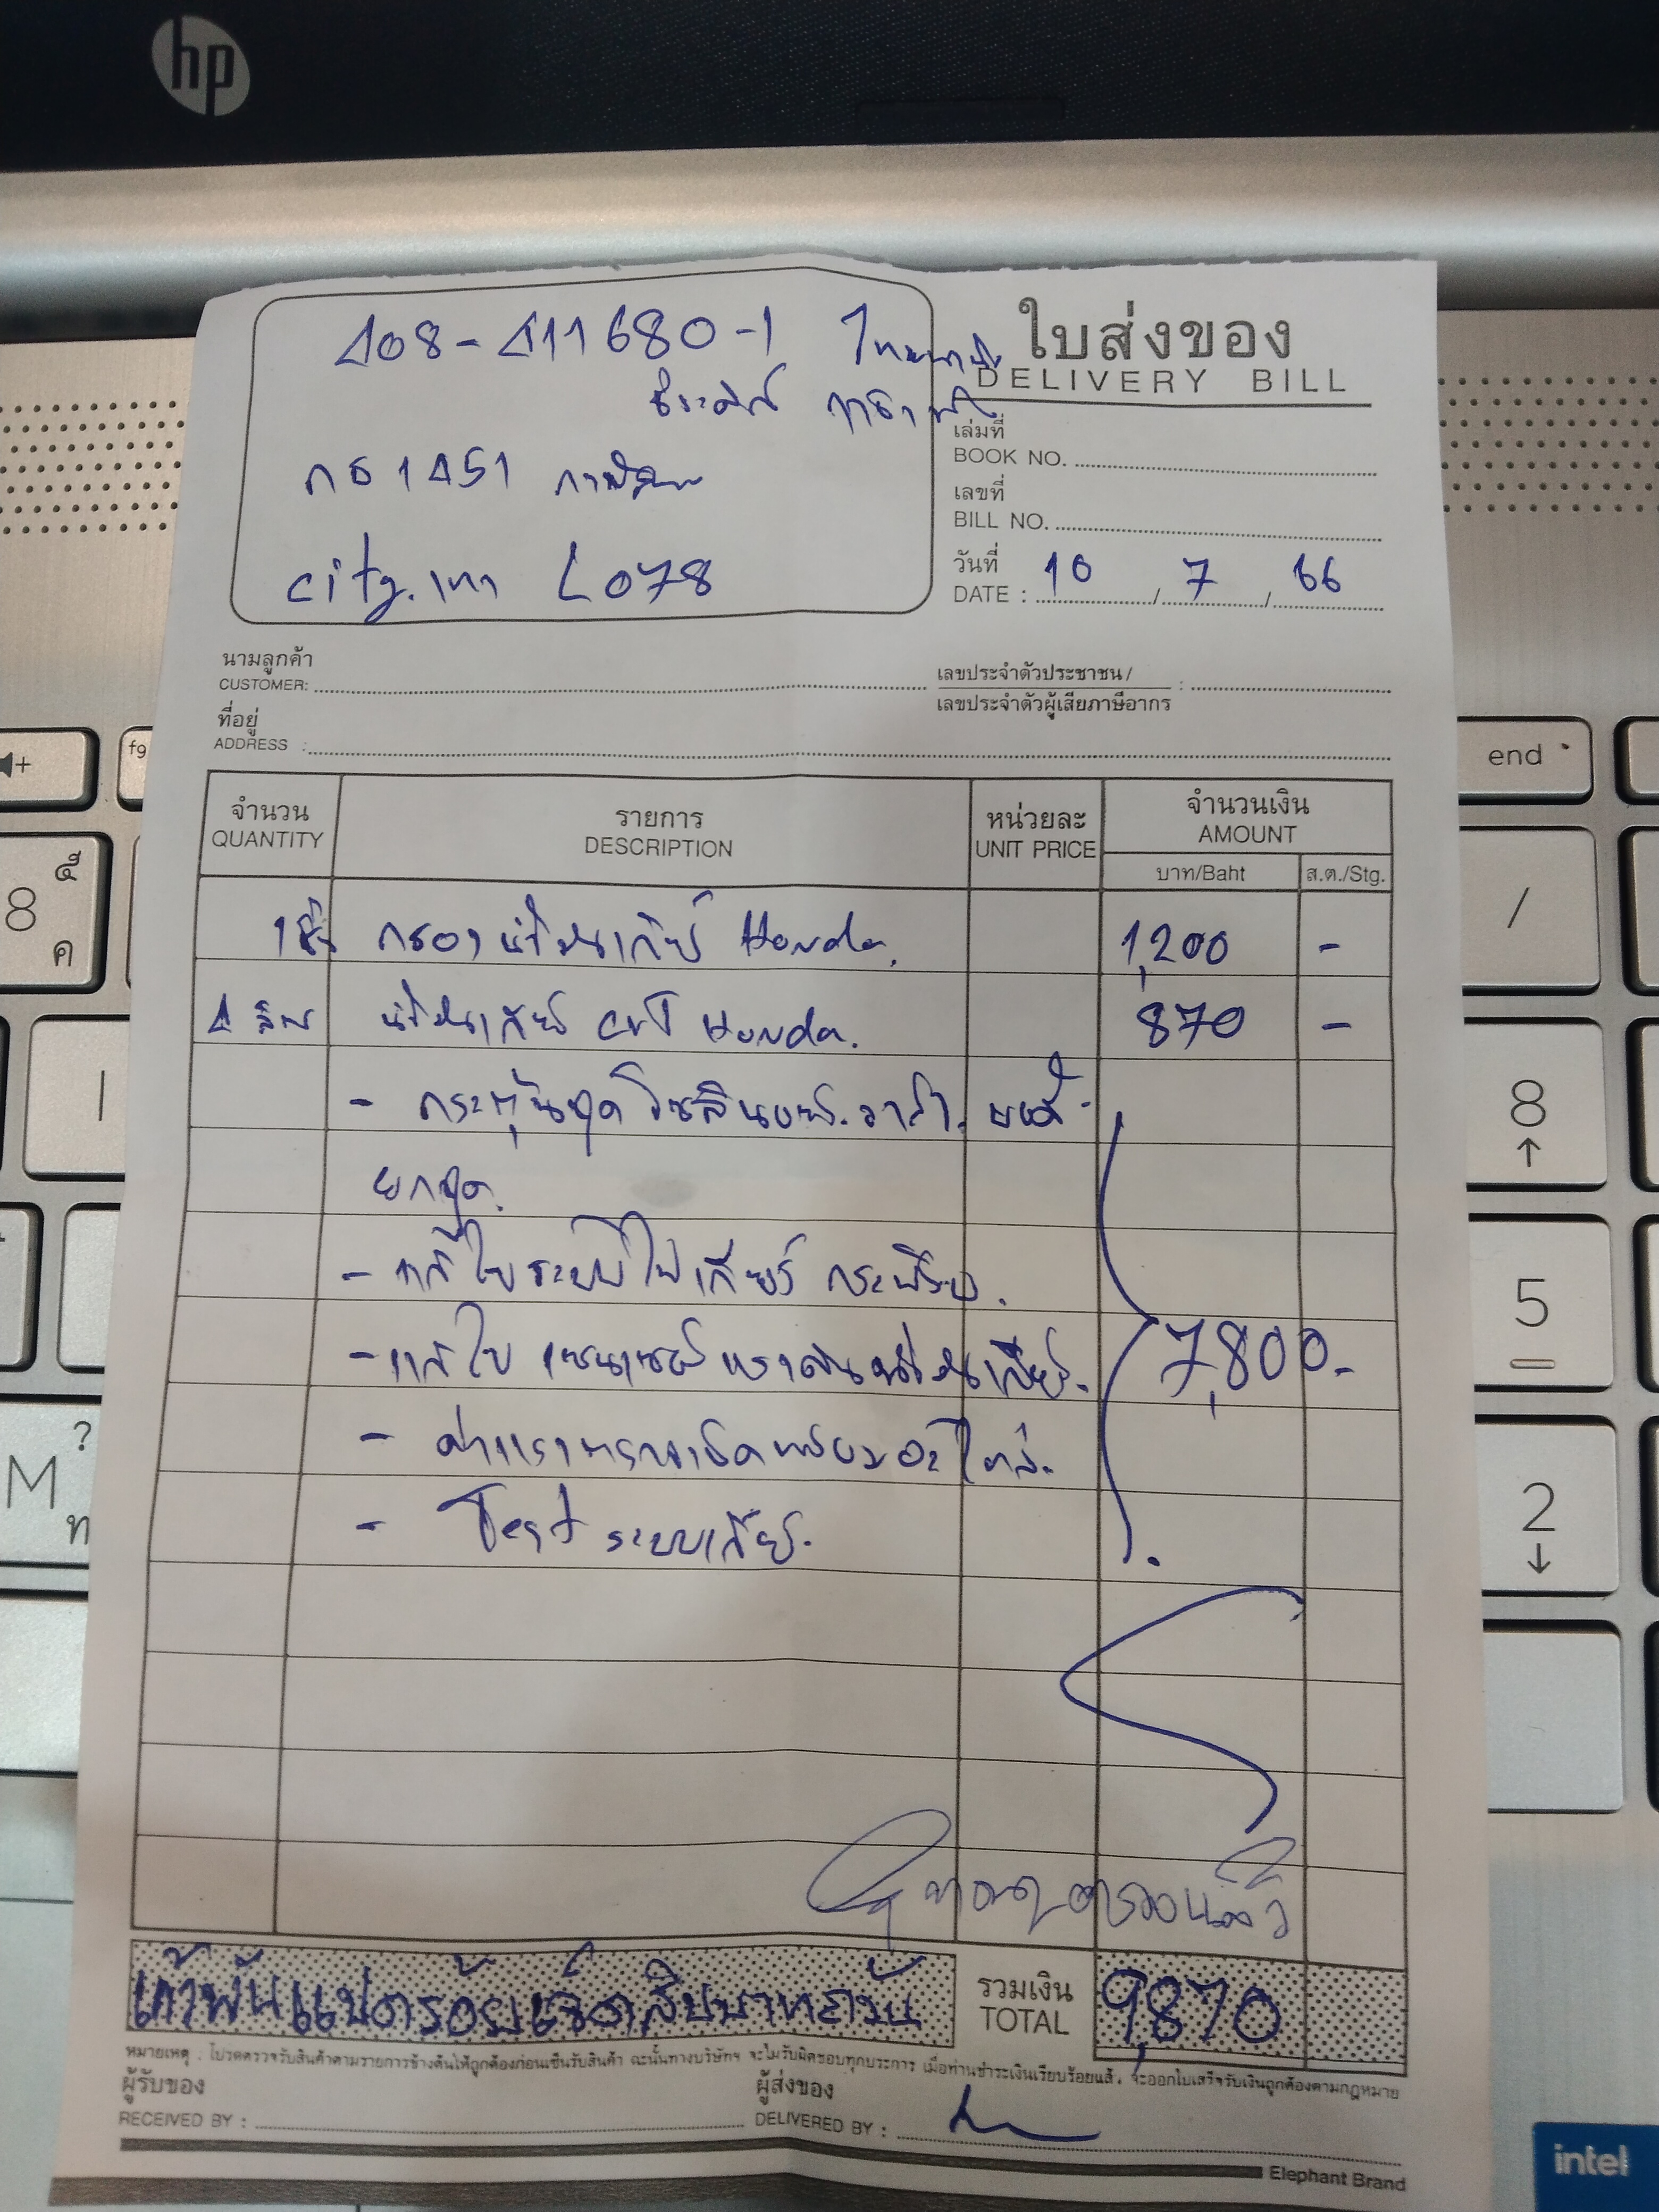 hp
408-411680-1 ไทยพาณิชย์
ใบส่งของ
DELIVERY BILL
เล่มที่
BOOK NO.
กธ 1451 กาฬสินธุ์
เลขที่
BILL NO.
city.เทา L078
วันที่
DATE : 10 / 7 / 66
นามลูกค้า
CUSTOMER:
เลขประจำตัวประชาชน /
เลขประจำตัวผู้เสียภาษีอากร :
ที่อยู่
ADDRESS :
จำนวน รายการ หน่วยละ จำนวนเงิน
QUANTITY DESCRIPTION UNIT PRICE AMOUNT
บาท/Baht ส.ต./Stg.
1 ชิ้น กรองน้ำมันเกียร์ Honda. 1,200 -
4 ลิตร น้ำมันเกียร์ CVT Honda. 870 -
- กระตุ้นชุดโซลินอยด์.วาล์ว.
ยกชุด.
- แก้ไขระบบไฟเกียร์ กระพริบ.
- แก้ไข เซนเซอร์ แรงดันน้ำมันเกียร์. 7,800.-
- ค่าแรงตรวจเช็คพร้อมอะไหล่.
- Test ระบบเกียร์.
ตรวจแล้ว
เก้าพันแปดร้อยเจ็ดสิบบาทถ้วน
รวมเงิน
TOTAL 9,870
หมายเหตุ : โปรดตรวจรับสินค้าตามรายการข้างต้นให้ถูกต้องก่อนเซ็นรับสินค้า ฉะนั้นทางบริษัทฯ จะไม่รับผิดชอบทุกประการ เมื่อท่านชำระเงินเรียบร้อยแล้ว, จะออกใบเสร็จรับเงินถูกต้องตามกฎหมาย
ผู้รับของ
RECEIVED BY :
ผู้ส่งของ
DELIVERED BY :
Elephant Brand
f9
end
8
๕
ค
/
8
↑
5
M
?
ท
2
↓
intel